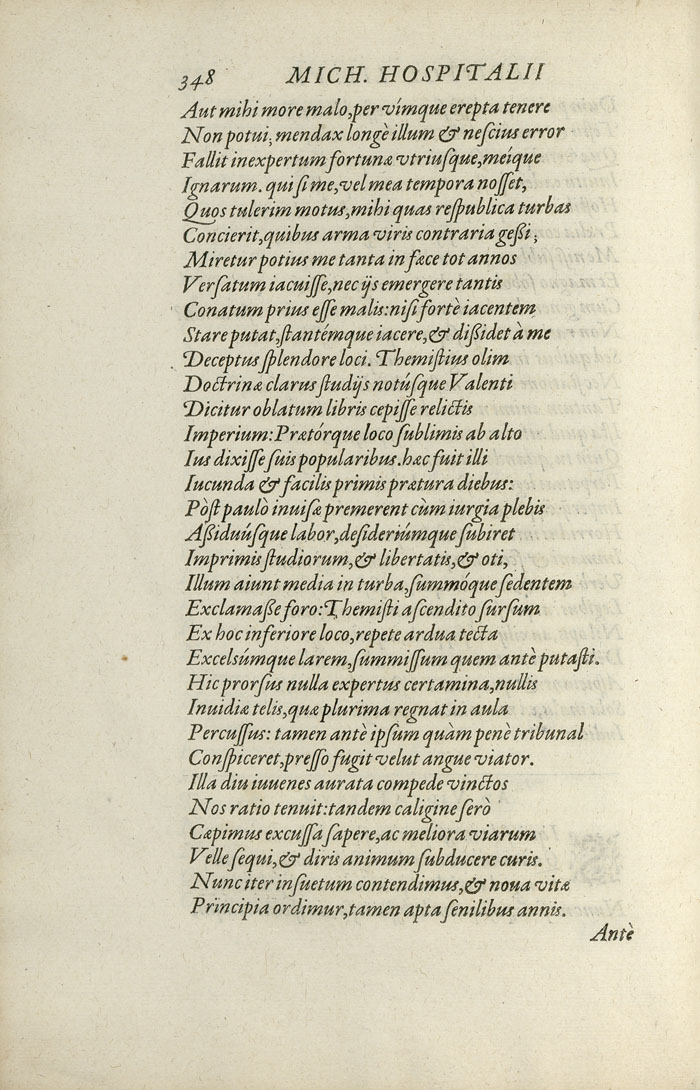 348 MICH. HOSPITALII
Aut mihi more malo, per vímque erepta tenere
Non potui, mendax longè illum & neſcius error
Fallit inexpertum fortunæ vtriuſque, meíque
Ignarum. qui ſi me, vel mea tempora noſſet,
Quos tulerim motus, mihi quas reſpublica turbas
Concierit, quibus arma viris contraria geßi;
Miretur potius me tanta in fæce tot annos
Verſatum iacuiſſe, nec ijs emergere tantis
Conatum prius eſſe malis: niſi fortè iacentem
Stare putat, ſtantémque iacere, & dißidet à me
Deceptus ſplendore loci. Themiſtius olim
Doctrinæ clarus ſtudijs notúſque Valenti
Dicitur oblatum libris cepiſſe relictis
Imperium: Prætórque loco ſublimis ab alto
Ius dixiſſe ſuis popularibus. hæc fuit illi
Iucunda & facilis primis prætura diebus:
Pòſt paulò inuiſæ premerent cùm iurgia plebis
Aßiduúſque labor, deſideriúmque ſubiret
Imprimis ſtudiorum, & libertatis, & oti,
Illum aiunt media in turba, ſummóque ſedentem
Exclamaße foro: Themiſti aſcendito ſurſum
Ex hoc inferiore loco, repete ardua tecta
Excelsúmque larem, ſummiſſum quem antè putaſti.
Hic prorſus nulla expertus certamina, nullis
Inuidiæ telis, quæ plurima regnat in aula
Percuſſus: tamen antè ipſum quàm penè tribunal
Conſpiceret, preſſo fugit velut angue viator.
Illa diu iuuenes aurata compede vinctos
Nos ratio tenuit: tandem caligine ſerò
Cæpimus excuſſa ſapere, ac meliora viarum
Velle ſequi, & diris animum ſubducere curis.
Nunc iter inſuetum contendimus, & noua vitæ
Principia ordimur, tamen apta ſenilibus annis.
Antè